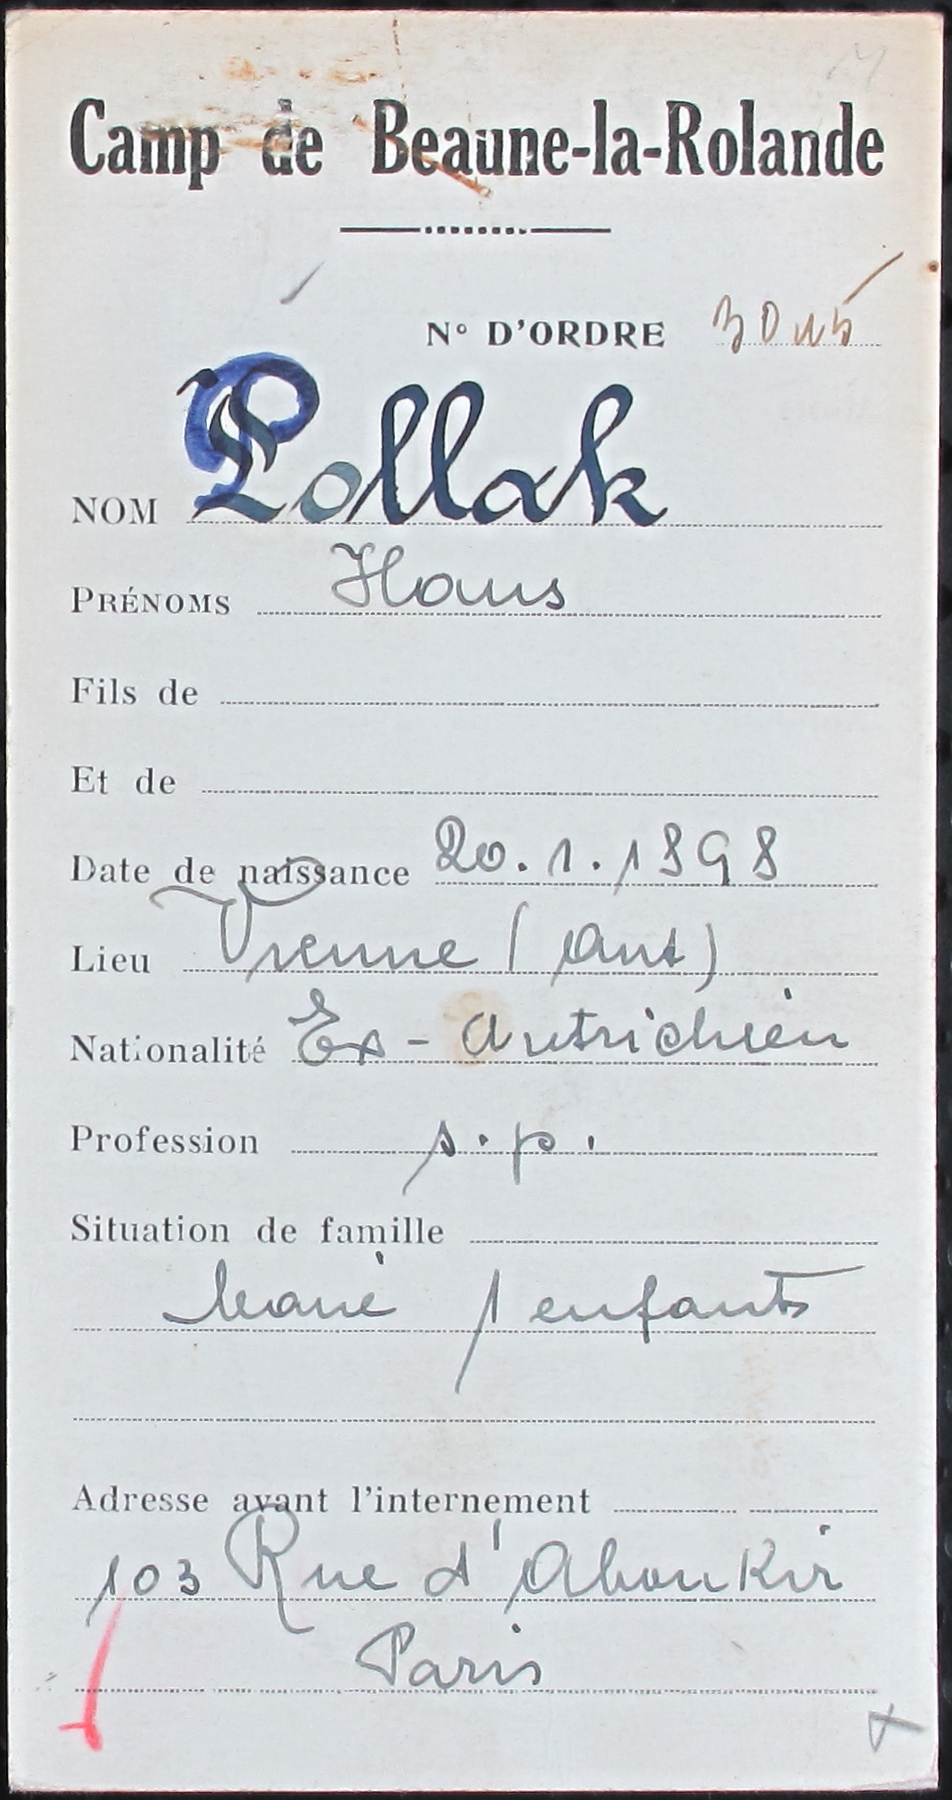 Camp de Beaune-la-Rolande
N° D'ORDRE
NOM Pollak
PRÉNOMS Hans
Fils de
Et de
Date de naissance 20.1.1898
Lieu Vienne (Aut)
Nationalité Ex-Autrichien
Profession s.p.
Situation de famille
Marié 1 enfants
Adresse avant l'internement
103 Rue d'Aboukir
Paris